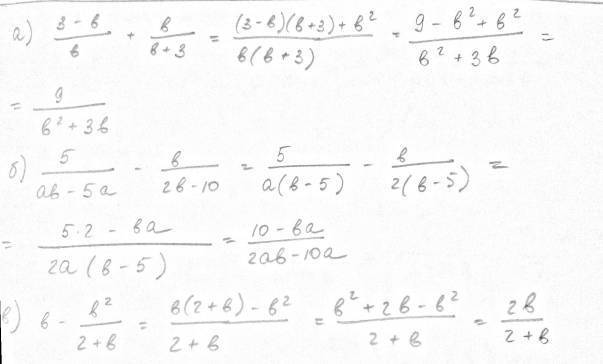 а) (3 - в)/в + в/(в + 3) = ((3 - в)(в + 3) + в²)/(в(в + 3)) = (9 - в² + в²)/(в² + 3в) =
= 9/(в² + 3в)
б) 5/(ав - 5а) - в/(2в - 10) = 5/(а(в - 5)) - в/(2(в - 5)) =
= (5·2 - ва)/(2а(в - 5)) = (10 - ва)/(2ав - 10а)
в) в - в²/(2 + в) = (в(2 + в) - в²)/(2 + в) = (в² + 2в - в²)/(2 + в) = 2в/(2 + в)